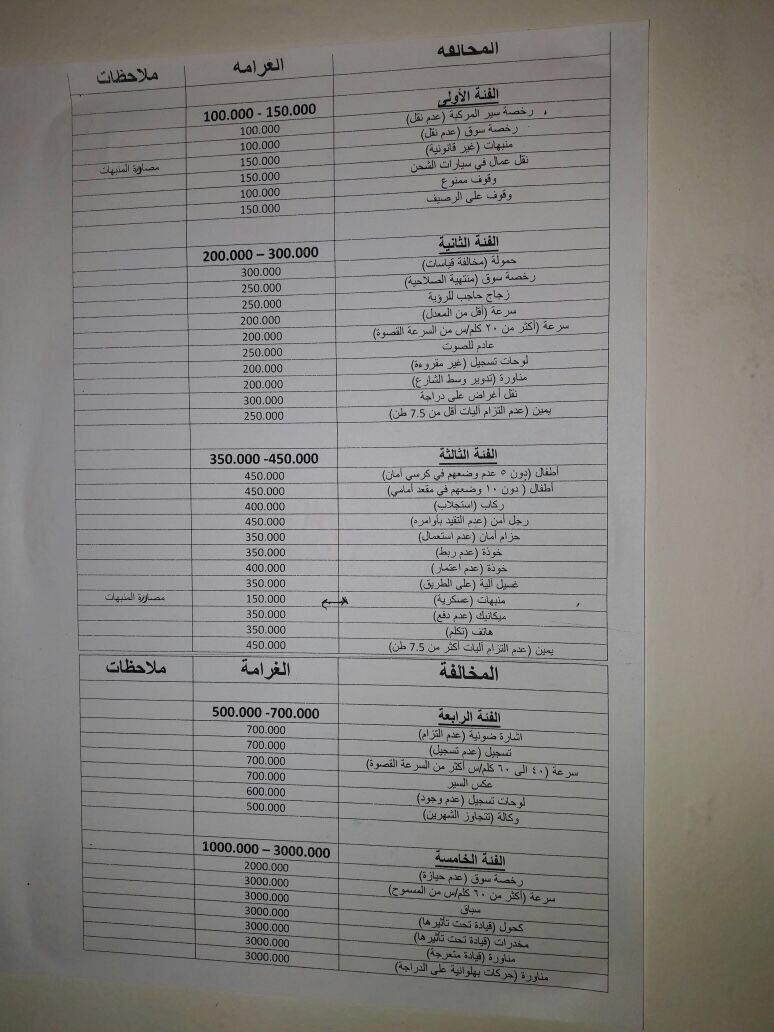 المخالفه العرامه ملاحظات
الفئة الأولى 100.000 - 150.000
رخصة سير المركبة (عدم نقل) 100.000
رخصة سوق (عدم نقل) 100.000
منبهات (غير قانونية) 150.000 مصادرة المنبهات
نقل عمال في سيارات الشحن 150.000
وقوف ممنوع 100.000
وقوف على الرصيف 150.000
الفئة الثانية 200.000 – 300.000
حمولة (مخالفة قياسات) 300.000
رخصة سوق (منتهية الصلاحية) 250.000
زجاج حاجب للرؤية 250.000
سرعة (أقل من المعدل) 200.000
سرعة (أكثر من ٢٠ كلم/س من السرعة القصوة) 200.000
عادم للصوت 250.000
لوحات تسجيل (غير مقروءة) 200.000
مناورة (تدوير وسط الشارع) 200.000
نقل أغراض على دراجة 300.000
يمين (عدم التزام آليات أقل من 7.5 طن) 250.000
الفئة الثالثة 350.000 -450.000
أطفال (دون ٥ عدم وضعهم في كرسي أمان) 450.000
أطفال ( دون ١٠ وضعهم في مقعد أمامي) 450.000
ركاب (استجلاب) 400.000
رجل أمن (عدم التقيد بأوامره) 450.000
حزام أمان (عدم استعمال) 350.000
خوذة (عدم ربط) 350.000
خوذة (عدم اعتمار) 400.000
غسيل آلية (على الطريق) 350.000
منبهات (عسكرية) 150.000 مصادرة المنبهات
ميكانيك (عدم دفع) 350.000
هاتف (تكلم) 350.000
يمين (عدم التزام آليات أكثر من 7.5 طن) 450.000
المخالفة الغرامة ملاحظات
الفئة الرابعة 500.000 -700.000
اشارة ضوئية (عدم التزام) 700.000
تسجيل (عدم تسجيل) 700.000
سرعة (٤٠ الى ٦٠ كلم/س أكثر من السرعة القصوة) 700.000
عكس السير 700.000
لوحات تسجيل (عدم وجود) 600.000
وكالة (تتجاوز الشهرين) 500.000
الفئة الخامسة 1000.000 – 3000.000
رخصة سوق (عدم حيازة) 2000.000
سرعة (أكثر من ٦٠ كلم/س من المسموح) 3000.000
سباق 3000.000
كحول (قيادة تحت تأثيرها) 3000.000
مخدرات (قيادة تحت تأثيرها) 3000.000
مناورة (قيادة متعرجة) 3000.000
مناورة (حركات بهلوانية على الدراجة) 3000.000